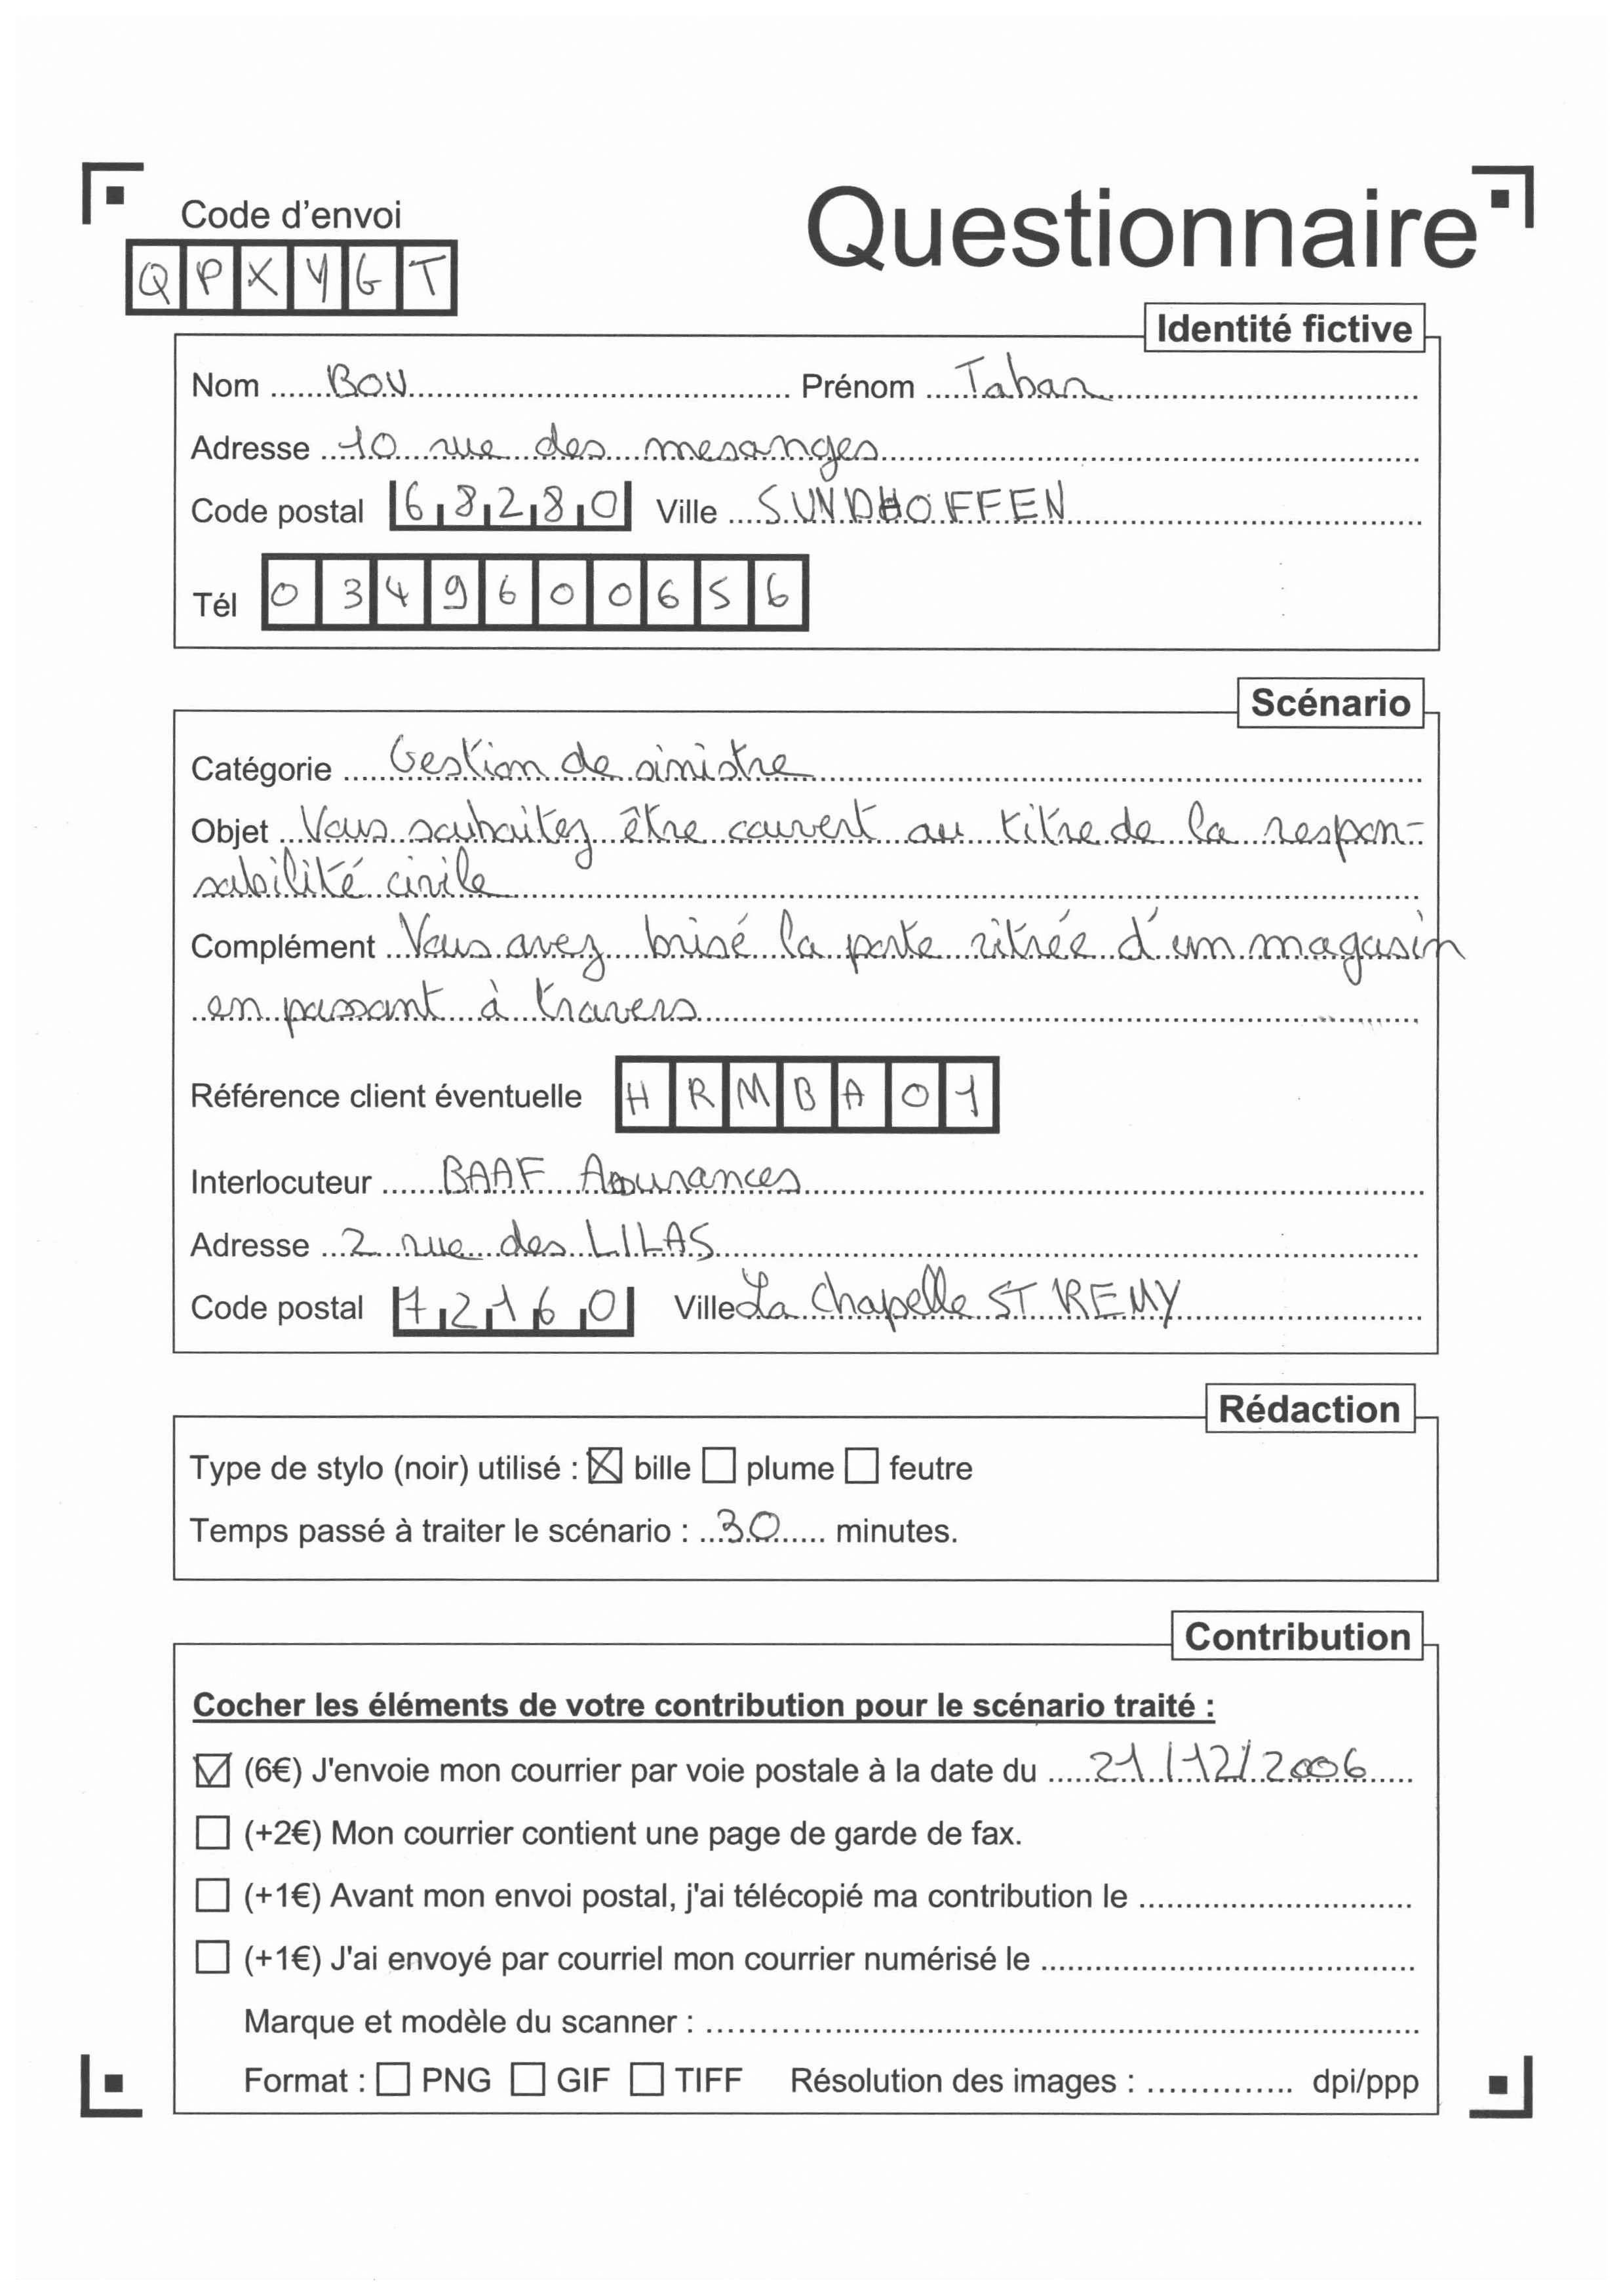 Code d'envoi
Questionnaire
QPXYGT
Identité fictive
Nom BOV Prénom Taban
Adresse 10 rue des mesanges
Code postal 68280 Ville SUNDHOFFEN
Tél 0349600656
Scénario
Catégorie Gestion de sinistre
Objet Vous souhaitez être couvert au titre de la respon-
sabilité civile
Complément Vous avez brisé la porte vitrée d'un magasin
en passant à travers
Référence client éventuelle HRMBA01
Interlocuteur BAAF Assurances
Adresse 2 rue des LILAS
Code postal 72160 Ville La Chapelle ST REMY
Rédaction
Type de stylo (noir) utilisé : ☒ bille ☐ plume ☐ feutre
Temps passé à traiter le scénario : 30 minutes.
Contribution
Cocher les éléments de votre contribution pour le scénario traité :
☑ (6€) J'envoie mon courrier par voie postale à la date du 21/12/2006
☐ (+2€) Mon courrier contient une page de garde de fax.
☐ (+1€) Avant mon envoi postal, j'ai télécopié ma contribution le
☐ (+1€) J'ai envoyé par courriel mon courrier numérisé le
Marque et modèle du scanner :
Format : ☐ PNG ☐ GIF ☐ TIFF Résolution des images : dpi/ppp